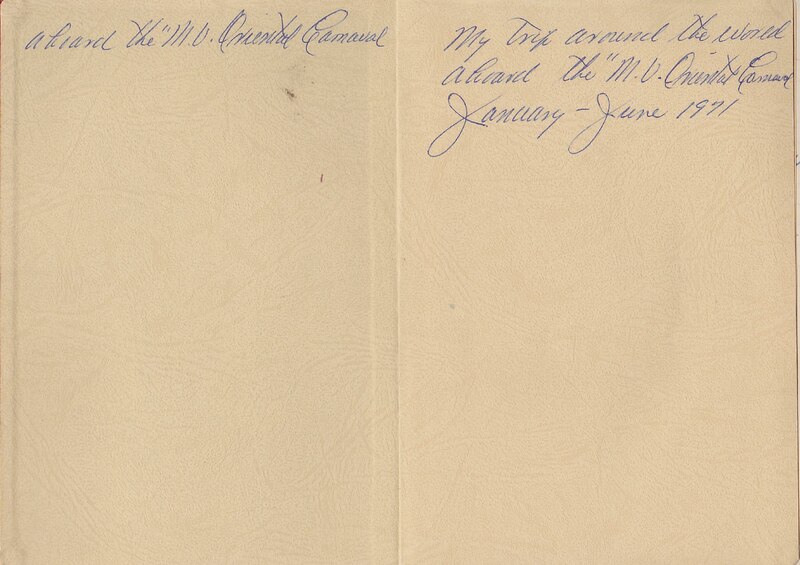 aboard the "M.V. Oriental Carnaval
My Trip around the World
aboard the "M.V. Oriental Carnaval
January - June 1971